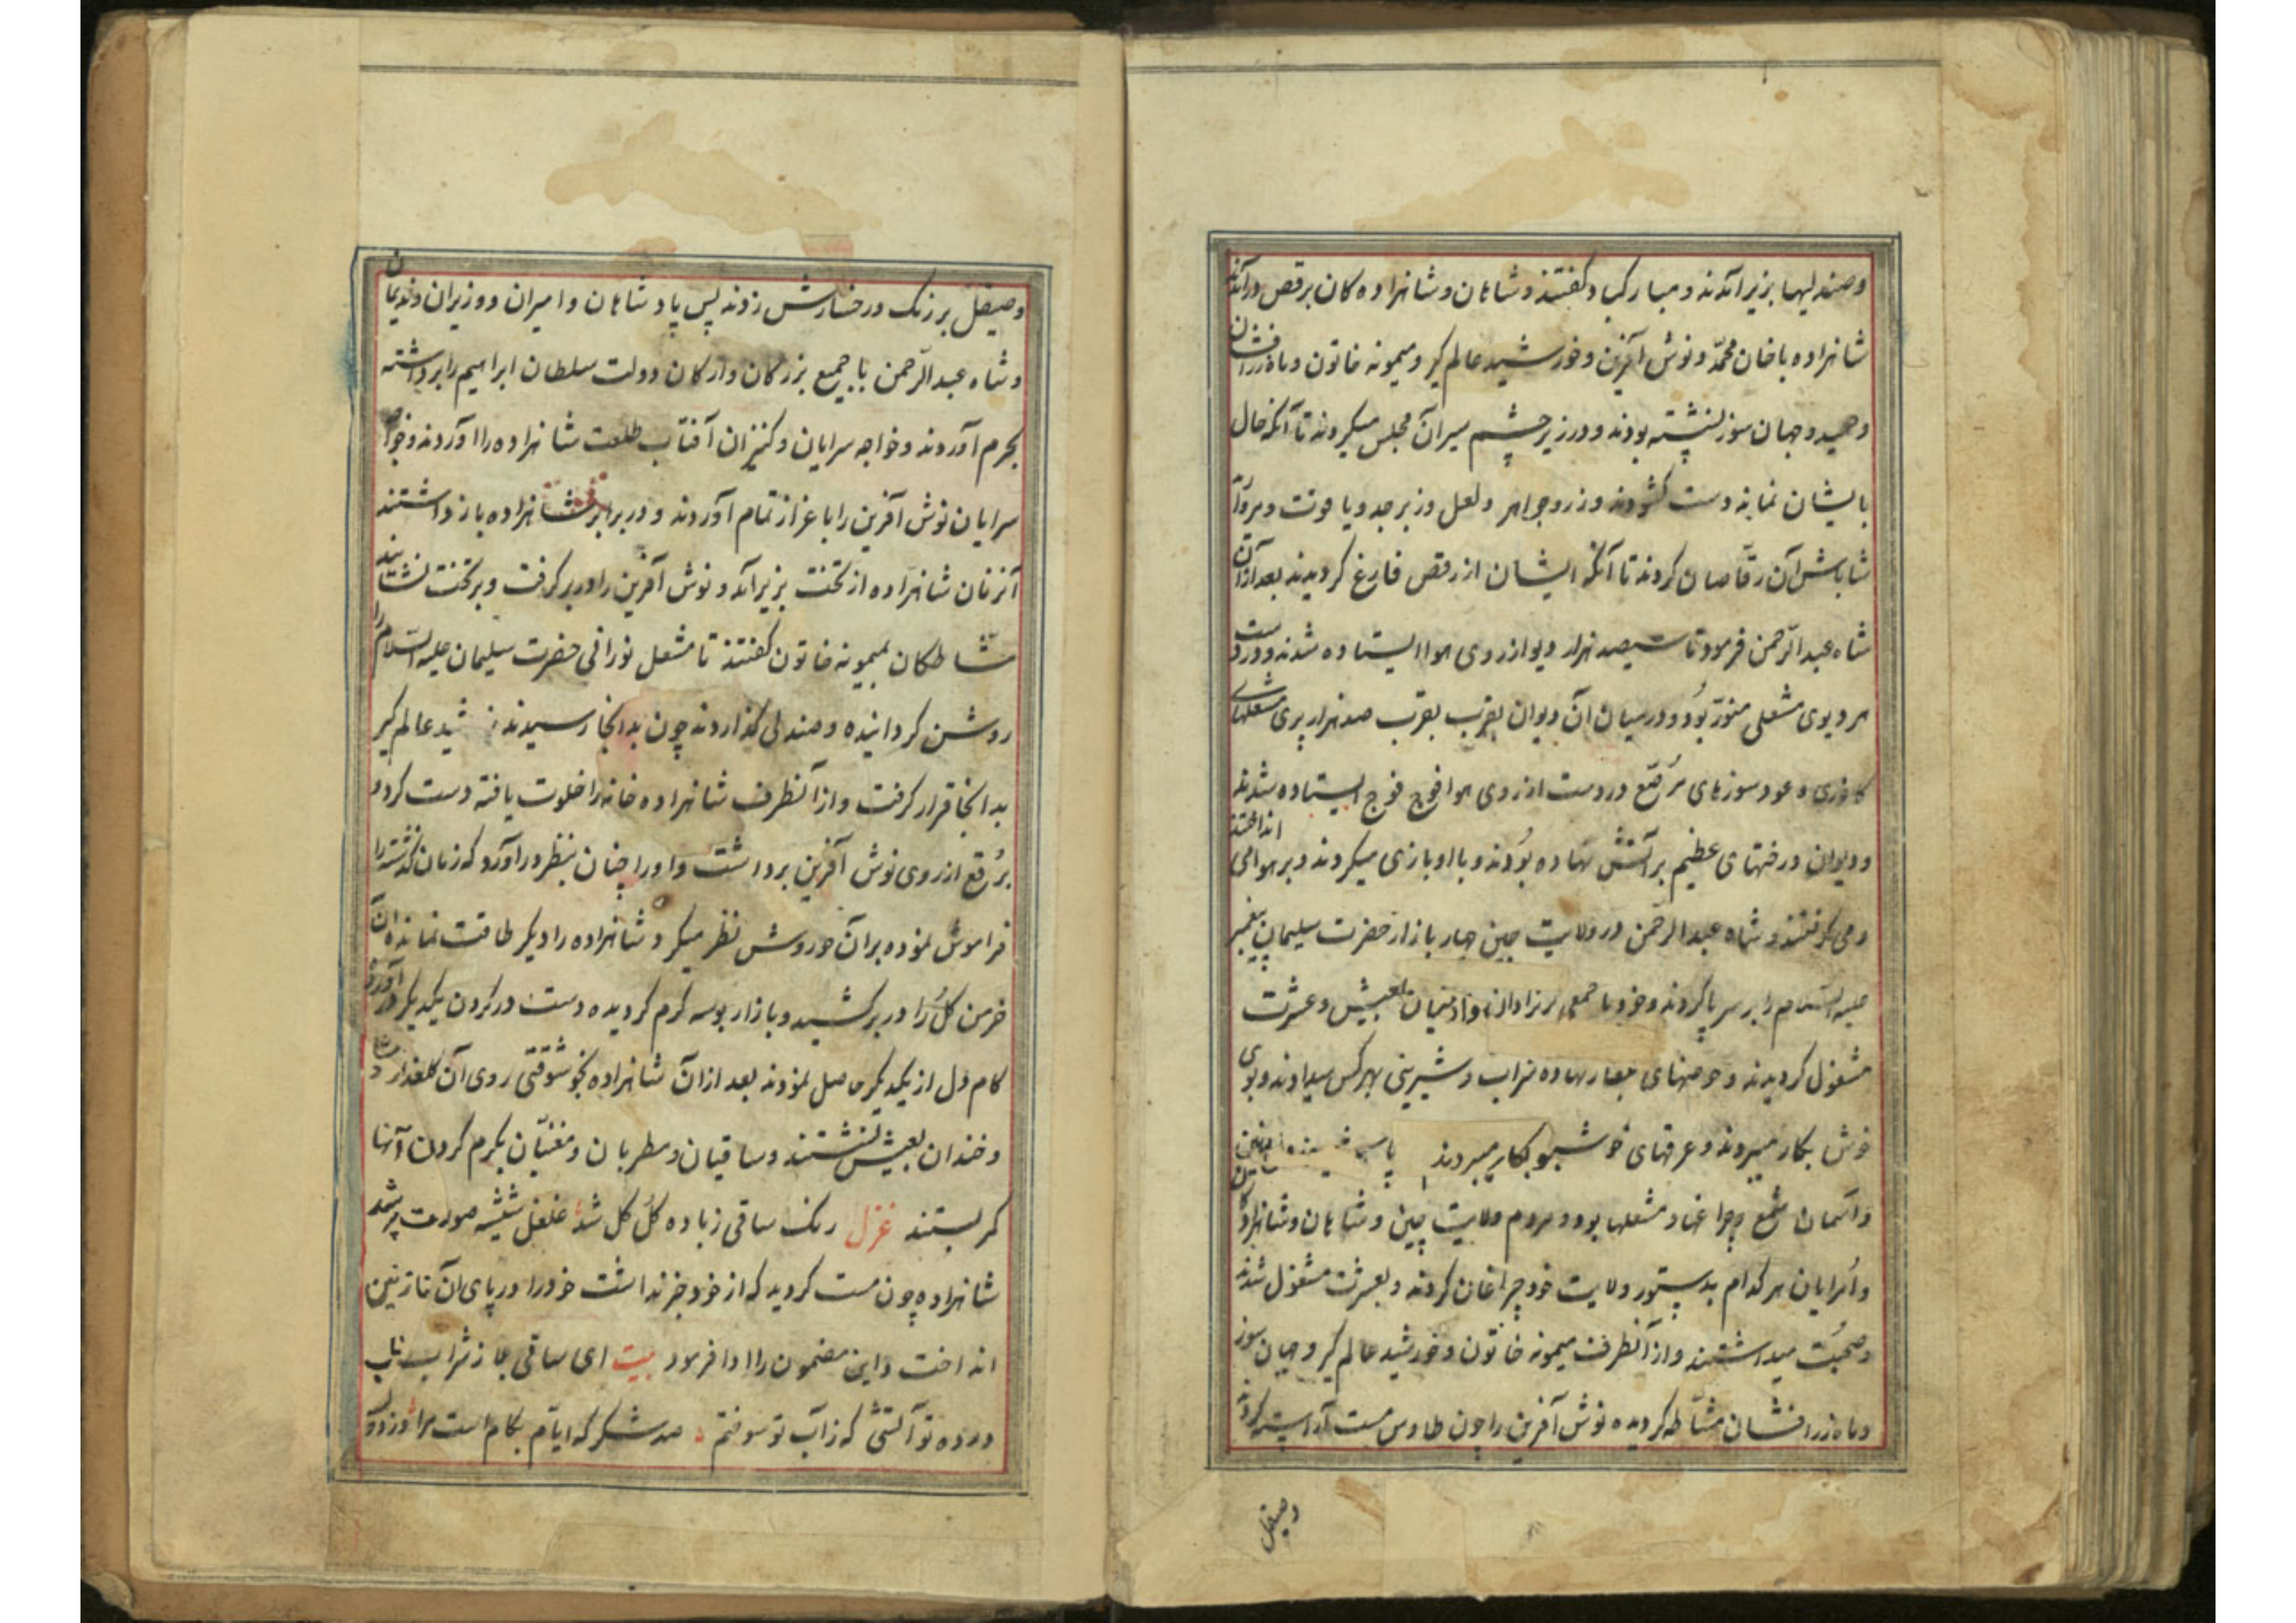 وصندلیها بزیر آمدند و مبارکباد گفتند و شاهان و شاهزاده کان برقص درآمدند
شاهزاده با خان محمّد و نوش آفرین و خورشید عالم کیر و میمونه خاتون و ماه زرافشان
و حمید و جهان سوز نشسته بودند و در زیر چشم سیر آن مجلس میکردند تا آنکه خال
بایشان نماید دست کشودند و زر و جواهر و لعل و زبرجد و یاقوت و مروآ
شاباش آن رقّاصان کردند تا آنکه ایشان از رقص فارغ کردیدند بعد از آن
شاه عبدالرّحمن فرمود تا سیصد هزار دیو از روی هوا ایستاده شدند و در دست
هر دیوی مشعلی منوّر بود و در میان آن دیوان بقرب بقرب صد هزار پری مشعلهای
کافوری و عود سوزهای مرصّع در دست از روی هوا فوج فوج ایستاده شدند
و دیوان درختهای عظیم بر آتش نهاده بودند و با او بازی میکردند و بر هوا می انداختند
و می کرفتند و شاه عبدالرحمن در ولایت چین چهار بازار حضرت سلیمان پیغمبر
علیه السّلام را بر سر پا کردند و خود با جمعی پریزادان و آدمیان بعیش و عشرت
مشغول کردیدند و حوضهای بصار نهاده شراب و شیرینی بهر کس میدادند و بوی
خوش بکار میبردند و عرقهای خوشبو بکار میبردند
و آسمان شمع و چراغها و مشعلها بود و مردم ولایت چین و شاهان و شاهزاده کان
و اُمرایان هر کدام بدستور ولایت خود چراغان کردند و بعشرت مشغول شدند
و صحبت میداشتند و از آنطرف میمونه خاتون و خورشید عالم کیر و جهان سوز
و ماه زرافشان مشّاطه کردیده نوش آفرین را چون طاوس مست آراسته کردند
وصیقل
وصیقل بر زنک و رخسارش زدند پس پادشاهان و امیران و وزیران و ندیمان
و شاه عبدالرّحمن با جمیع بزرکان و ارکان دولت سلطان ابراهیم را برداشته
بحرم آوردند و خواجه سرایان و کنیزان آفتاب طلعت شاهزاده را آوردند و خواجه
سرایان نوش آفرین را باعزاز تمام آوردند و در برابر شاهزاده باز داشتند
آنزمان شاهزاده از تخت بزیر آمد و نوش آفرین را در بر کرفت و بر تخت نشانید
مشّاطکان بمیمونه خاتون کفتند تا مشعل نورانی حضرت سلیمان علیه السّلام را
روشن کردانیده و صندلی کذاردند چون بدانجا رسیدند شید عالم کیر
بدانجا قرار کرفت و از آنطرف شاهزاده خانه را خلوت یافته دست کرد و
بُرقع از روی نوش آفرین برداشت و او را چنان بنظر در آورد که زمان کذشته را
فراموش نموده بر آن حوروش نظر میکرد شاهزاده را دیکر طاقت نمانده آن
خرمن کل را در بر کشید و بازار بوسه کرم کردیده دست در کردن یکدیکر در آورده
کام دل از یکدیکر حاصل نمودند بعد از آن شاهزاده بخوشوقتی روی آن کلعذار
و خندان بعیش نشستند و ساقیان و مطربان و مغنیّان بکرم کردن آنها
کمر بستند غزل رنک ساقی زباده کل کل شد غلغل شیشه صورت پر شد
شاهزاده چون مست کردید که از خود خبر نداشت خود را در پای آن نازنین
انداخت و این مضمون را ادا فرمود بیت ای ساقی جا ز شراب ناب
درده تو آتشی که ز آب تو سوختم صد شکر که ایّام بکام است مرا